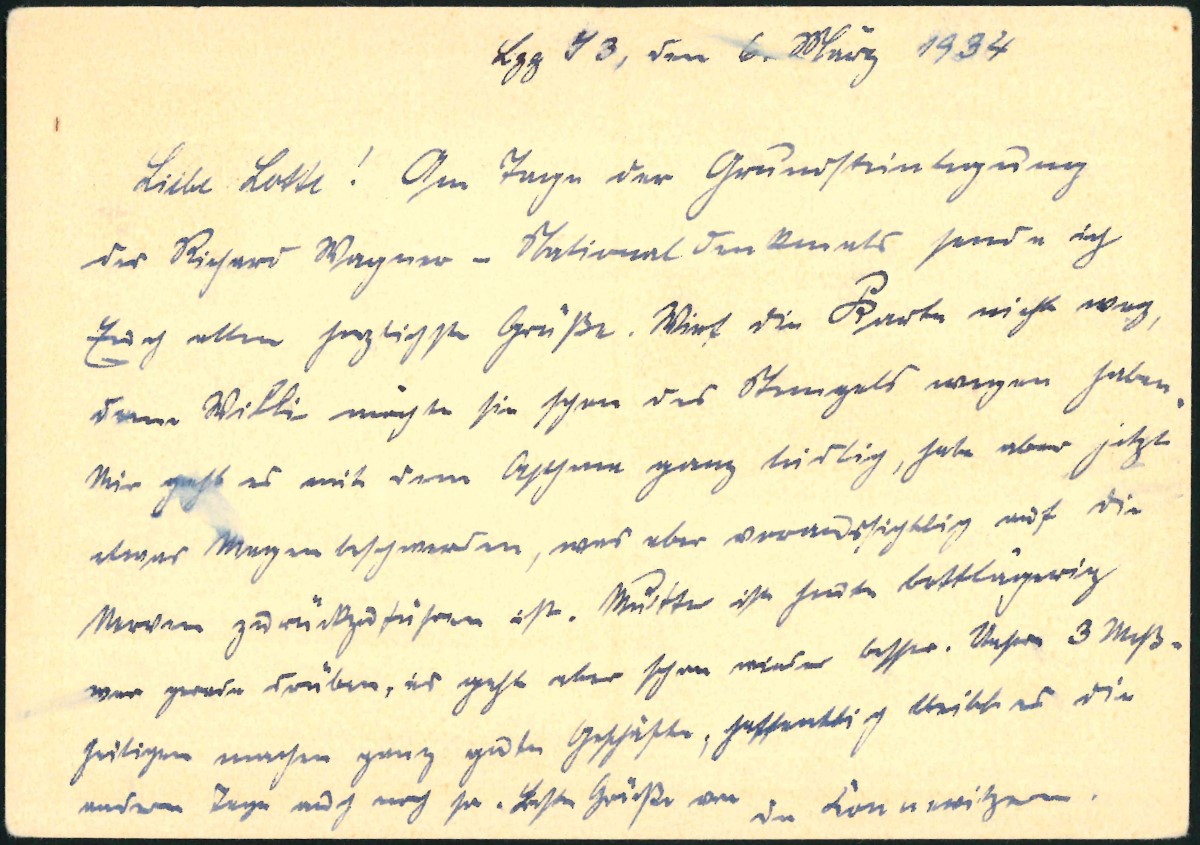 Lpzg S 3, den 6. März 1934
Liebe Lotte! Am Tage der Grundsteinlegung
des Richard Wagner - Nationaldenkmals sende ich
Euch allen herzlichste Grüße. Wirf die Karte nicht weg,
denn Willi möchte sie schon des Stempels wegen haben.
Mir geht es mit dem Asthma ganz leidlich, habe aber jetzt
etwas Magenbeschwerden, was aber voraussichtlich auf die
Nerven zurückzuführen ist. Mutter ist heute bettlägerig
war gerade drüben, es geht aber schon wieder besser. Unsere 3 Meß-
heiligen machen ganz gute Geschäfte, hoffentlich bleibt es die
andern Tage auch noch so. Beste Grüße von
den Connewitzern.